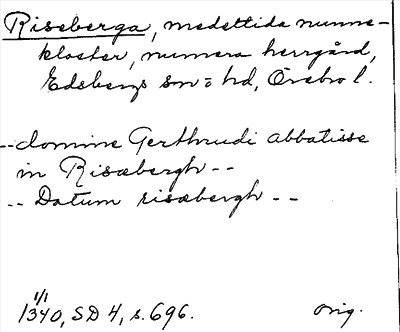 Riseberga, medeltida nunne-
kloster, numera herrgård,
Edsbergs sn o hd, Örebro l.
--domine Gerthrudi abbatisse
in Risæbergh--
-- Datum risæbergh --
1/1
1340, SD 4, s. 696. orig.